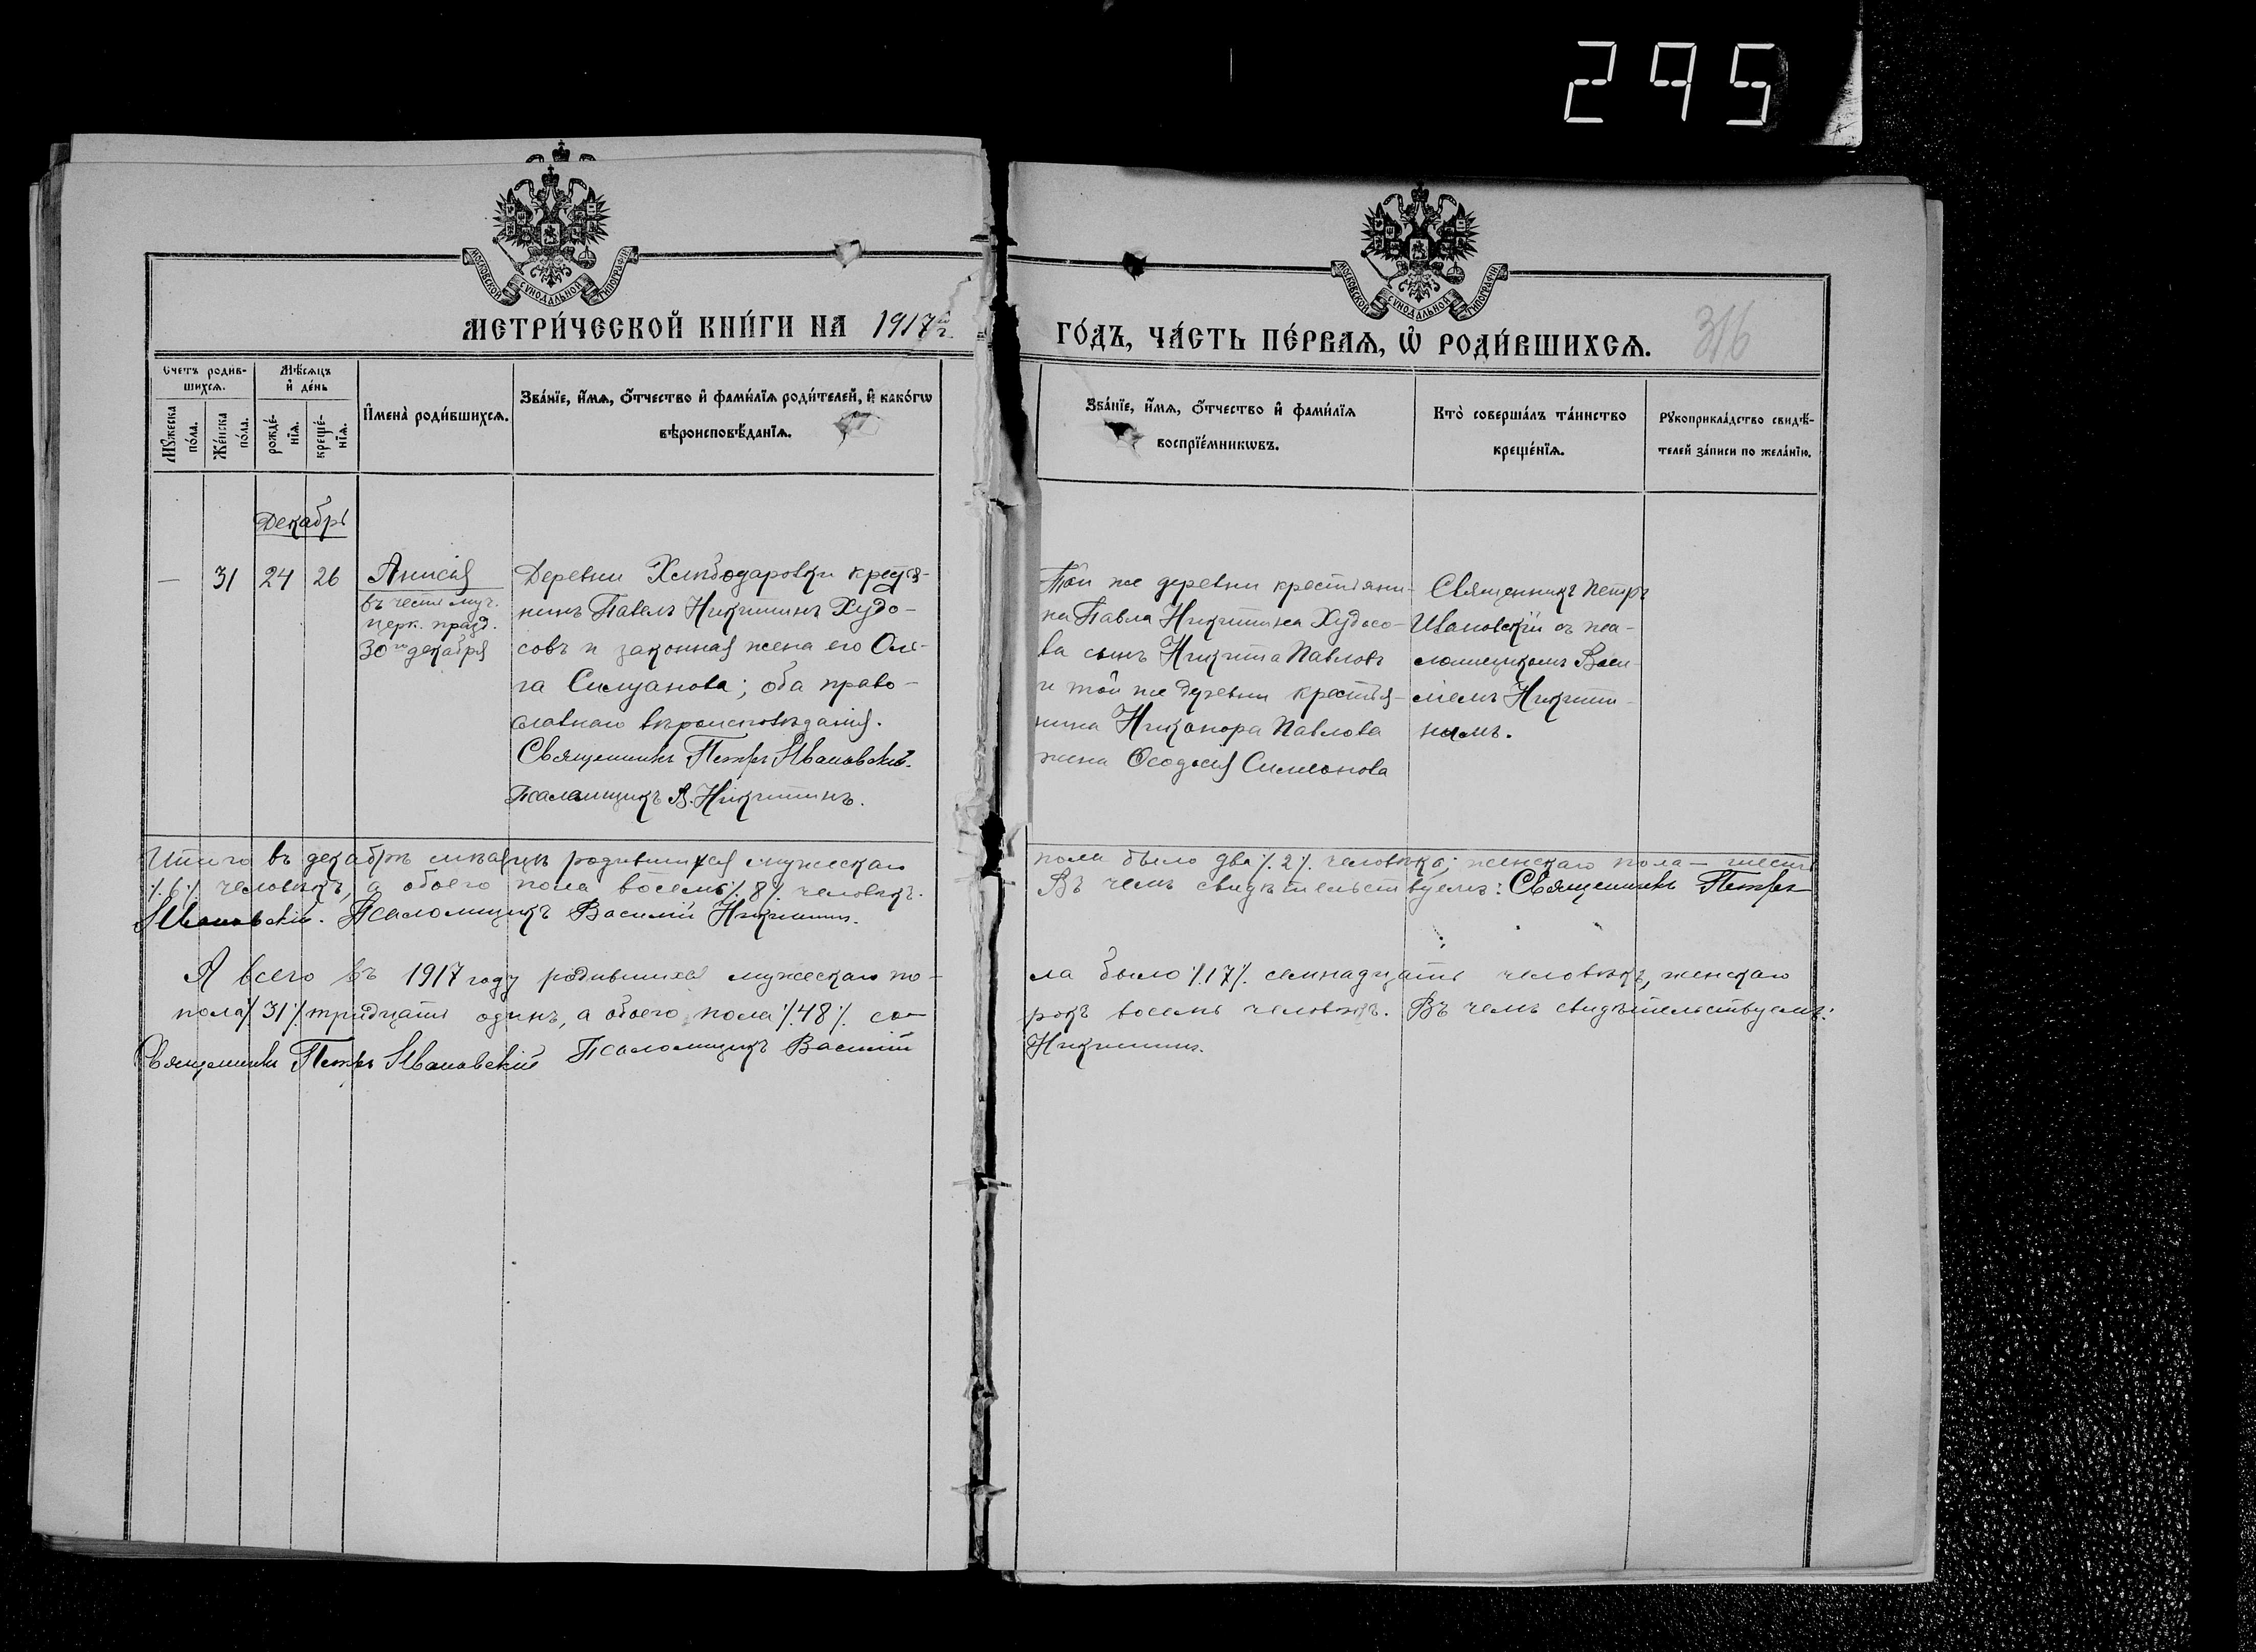 295
МОСКОВСКОЙ СѴНОДАЛЬНОЙ ТИПОГРАФІИ
МОСКОВСКОЙ СѴНОДАЛЬНОЙ ТИПОГРАФІИ
МЕТРИ́ЧЕСКОЙ КНИ́ГИ НА 1917 г.
ГО́ДЪ, ЧА́СТЬ ПЕ́РВАѦ, Ѡ҆ РОДИ́ВШИХСѦ.
316
Счетъ родив-
шихсѧ.
Мѣ́сѧцъ
и҆ де́нь
Мꙋ́жеска
по́ла.
Же́нска
по́ла.
рожде́-
нїѧ.
креще́-
нїѧ.
И҆мена̀ роди́вшихсѧ.
Зва́нїе, и҆́мѧ, ѻ҆́тчество и҆ фами́лїѧ роди́телей, и҆ како́гѡ
вѣроисповѣ́данїѧ.
Зва́нїе, и҆́мѧ, ѻ҆́тчество и҆ фами́лїѧ
воспрїе́мникѡвъ.
Кто̀ соверша́лъ та́инство
креще́нїѧ.
Рꙋкоприкла́дство свидѣ́-
телей за́писи по жела́нїю.
Декабрь
— 31 24 26
Анисія
въ честь муч.
церк. празд.
30го декабря
Деревни Хлѣбодаровки крестья-
нинъ Павелъ Никитинъ Худо-
совъ и законная жена его Оль-
га Силуанова; оба право-
славнаго вѣроисповѣданія.
Священникъ Петръ Ивановскій.
Псаломщикъ В. Никитинъ.
Той же деревни крестьяни-
на Павла Никитина Худосо-
ва сынъ Никита Павловъ
и той же деревни крестья-
нина Никанора Павлова
жена Ѳеодосія Симеонова
Священникъ Петръ
Ивановскій съ пса-
ломщикомъ Васи-
ліемъ Никити-
нымъ.
Итого въ декабрѣ мѣсяцѣ родившихся мужескаго
пола было два ٪2٪ человѣка; женскаго пола — шесть
٪6٪ человѣкъ, а обоего пола восемь ٪8٪ человѣкъ.
Въ чемъ свидѣтельствуемъ: Священникъ Петръ
Ивановскій. Псаломщикъ Василій Никитинъ.
А всего въ 1917 году родившихся мужескаго по-
ла было ٪17٪ семнадцать человѣкъ, женскаго
пола ٪31٪ тридцать одинъ, а обоего пола ٪48٪ со-
рокъ восемь человѣкъ. Въ чемъ свидѣтельствуемъ:
Священникъ Петръ Ивановскій Псаломщикъ Василій
Никитинъ.